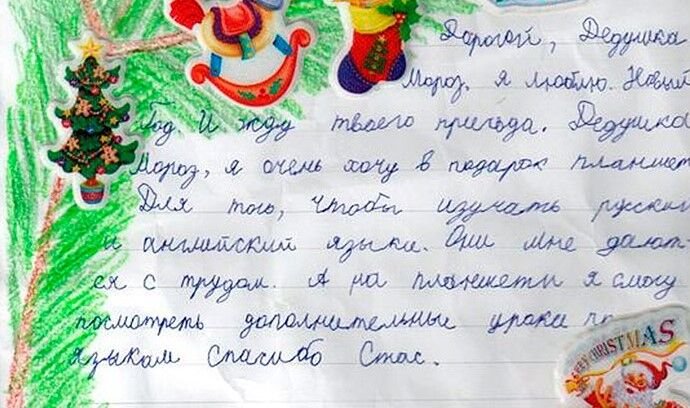 Дорогой, Дедушка
Мороз. я люблю. Новый
Год. И жду твоего приезда. Дедушка
Мороз, я очень хочу в подарок планшет
Для того, чтобы изучать русский
и английский языки. Они мне дают-
ся с трудом. А на планшети я смогу
посмотреть дополнительные уроки по
языкам спасибо Стас.
MERRY CHRISTMAS